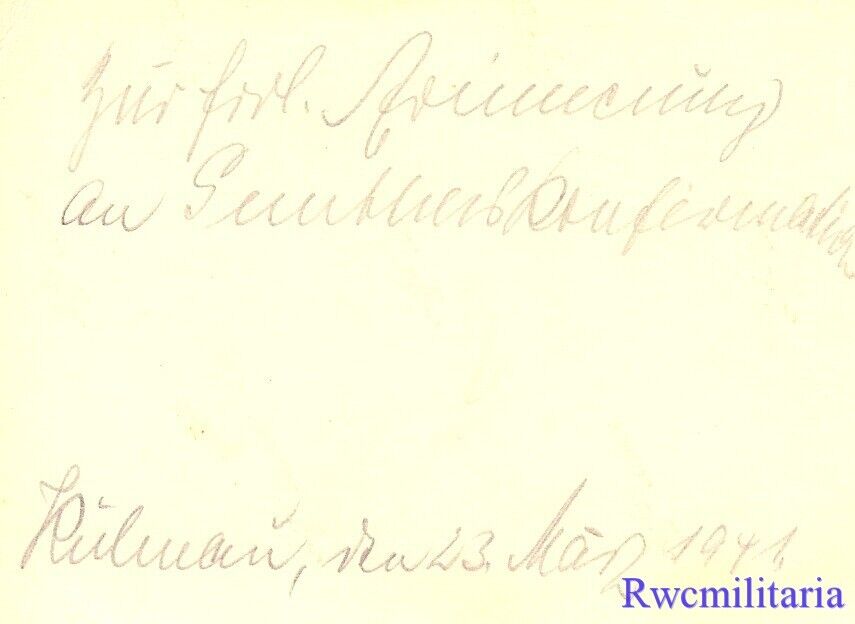 zur frdl. Erinnerung
an Günthers Konfirmation
Külmaü, den 23. März 1941
Rwcmilitaria